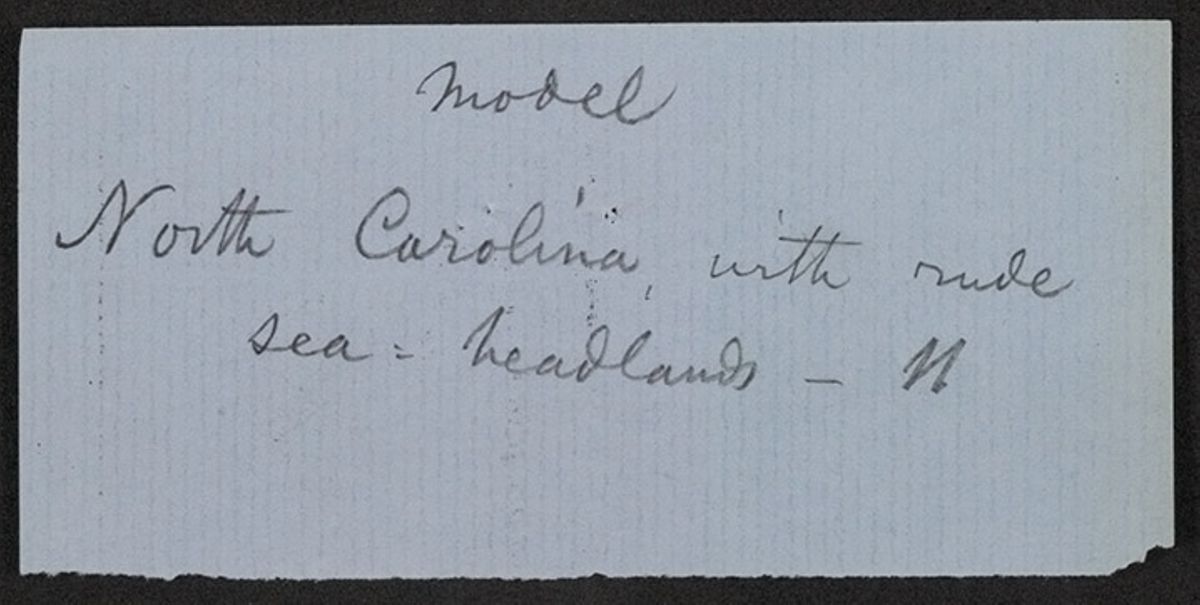 Model
North Carolina, with rude
sea-headlands – N